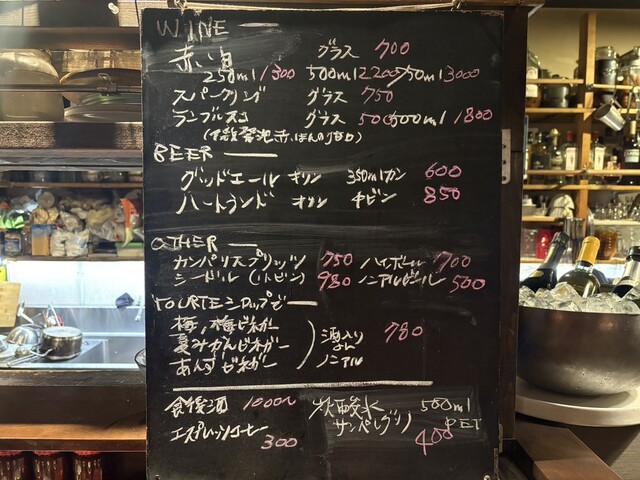 WINE
赤い白 グラス 700
250ml 1300 500ml 2200 750ml 3000
スパークリング グラス 750
ランブルスコ グラス 500 500ml 1800
BEER
グッドエール キリン 350mlカン 600
ハートランド キリン 中ビン 850
OTHER
カンパリスプリッツ 750 ハイボール 700
シードル(小ビン) 980 ノンアルビール 500
梅、梅ビネガー
夏みかんビネガー 酒入り 780
あんずビネガー ノンアル
食後酒 1000〜 炭酸水 500ml
エスプレッソコーヒー サンペレグリノ PET
300 400